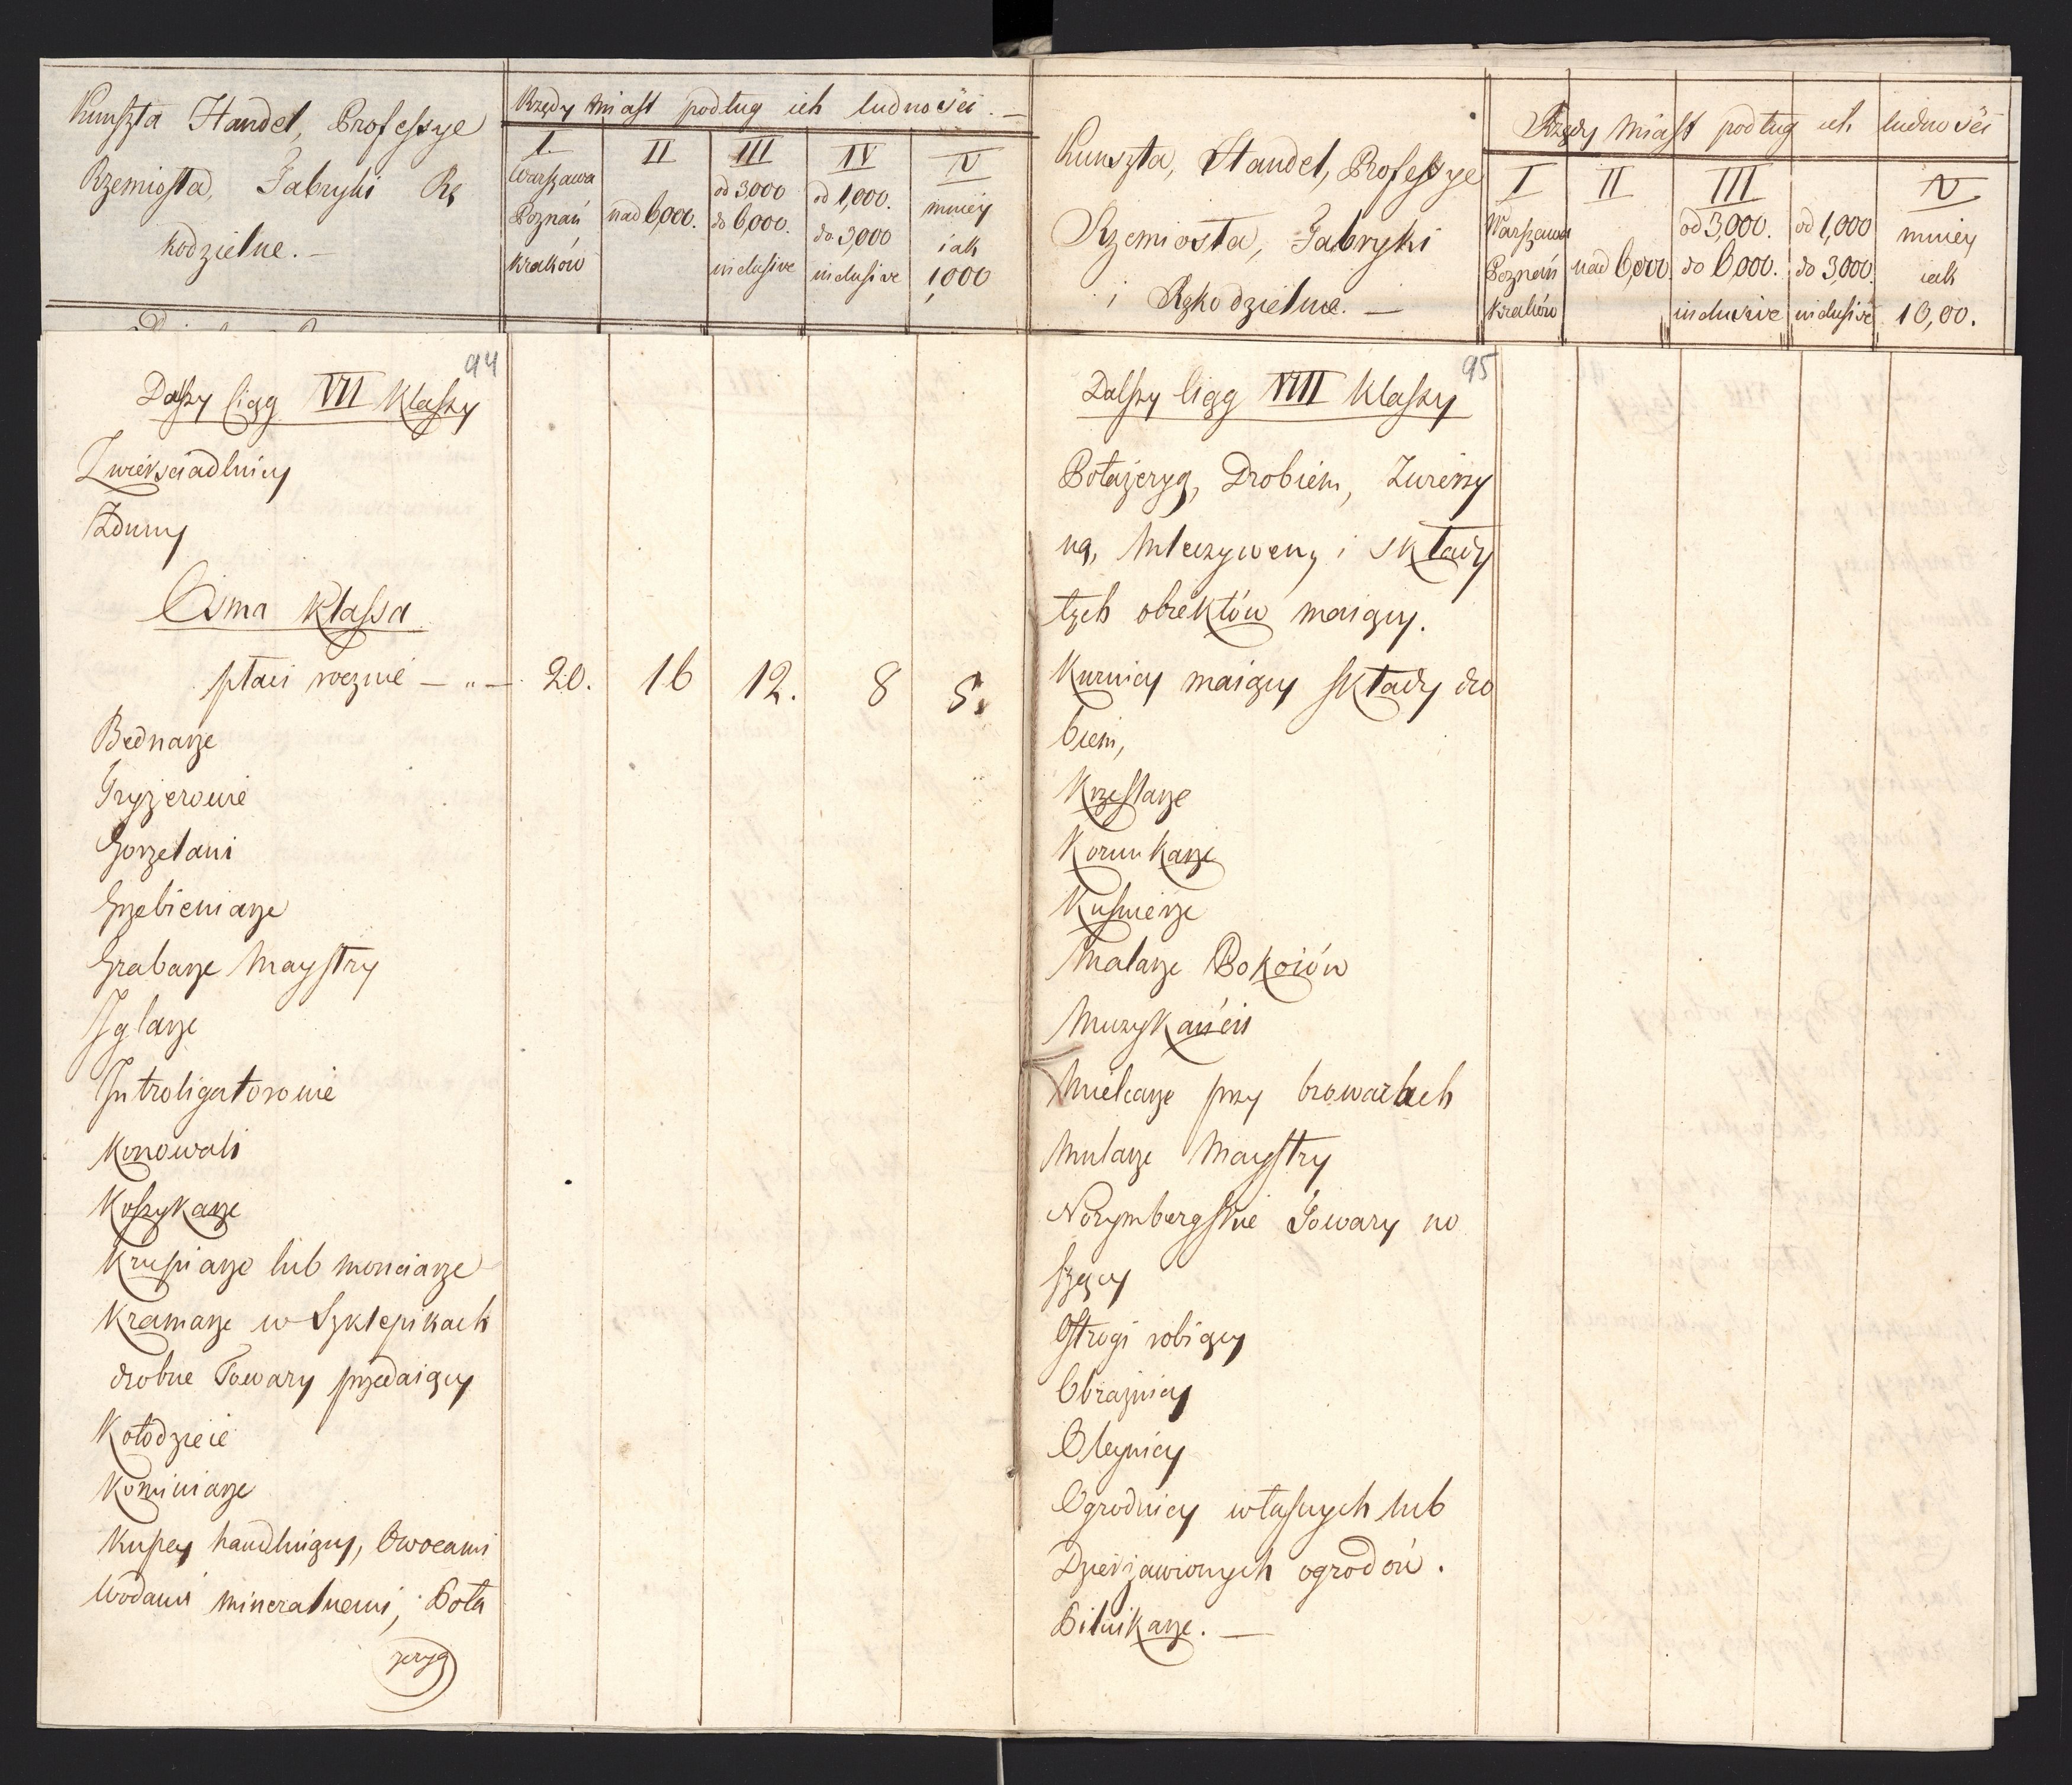 Kunszta Handel, Professye
Rzemiosła, Fabryki Rę
kodzielne. —
Rzędy Miast podług ich ludności. —
I II III IV V
Warszawa
Poznań
Kraków
nad 6,000.
od 3,000
do 6,000.
inclusive
od 1,000.
do 3,000
inclusive
mniey
iak
1,000
94
Dalszy Ciąg VII Klassy
Zwierściadlnicy
Zduny
Osma Klassa
płaci rocznie — „ — 20. 16 12. 8 5.
Bednarze
Fryzierowie
Gorzelani
Grzebieniarze
Grabarze Maystry
Iglarze
Introligatorowie
Konowali
Koszykarze
Krupiarze lub monciarze
Kramarze w Szklepikach
drobne Towary przedaiący
Kołodzieie
Kominiarze
Kupcy handluiący, Owocami
Wodami mineralnemi, Bota
żeryą
Kunszta, Handel, Professye
Rzemiosła, Fabryki
i Rękodzielne. —
Rzędy Miast podług ich ludności
I II III V
Warszawa
Poznań
Kraków
nad 6,000
od 3,000.
do 6,000.
inclusive
od 1,000
do 3,000
inclusive
mniey
iak
10,00.
95
Dalszy Ciąg VIII Klassy
Botażeryą, Drobiem, Zwierzy
ną, Mleczywem, i Składy
tych obiektów maiący.
Kurnicy maiący Składy dro
biem,
Krzeslarze
Korunkarze
Kusnierze
Malarze Pokoiów
Muzykańci
Mielcarze przy browarach
Mularze Maystry
Norymbergskie Towary no
szący
Ostrogi robiący
Obraźnicy
Oleynicy
Ogrodnicy własnych lub
Dzierżawionych ogrodów.
Pilnikarze. —